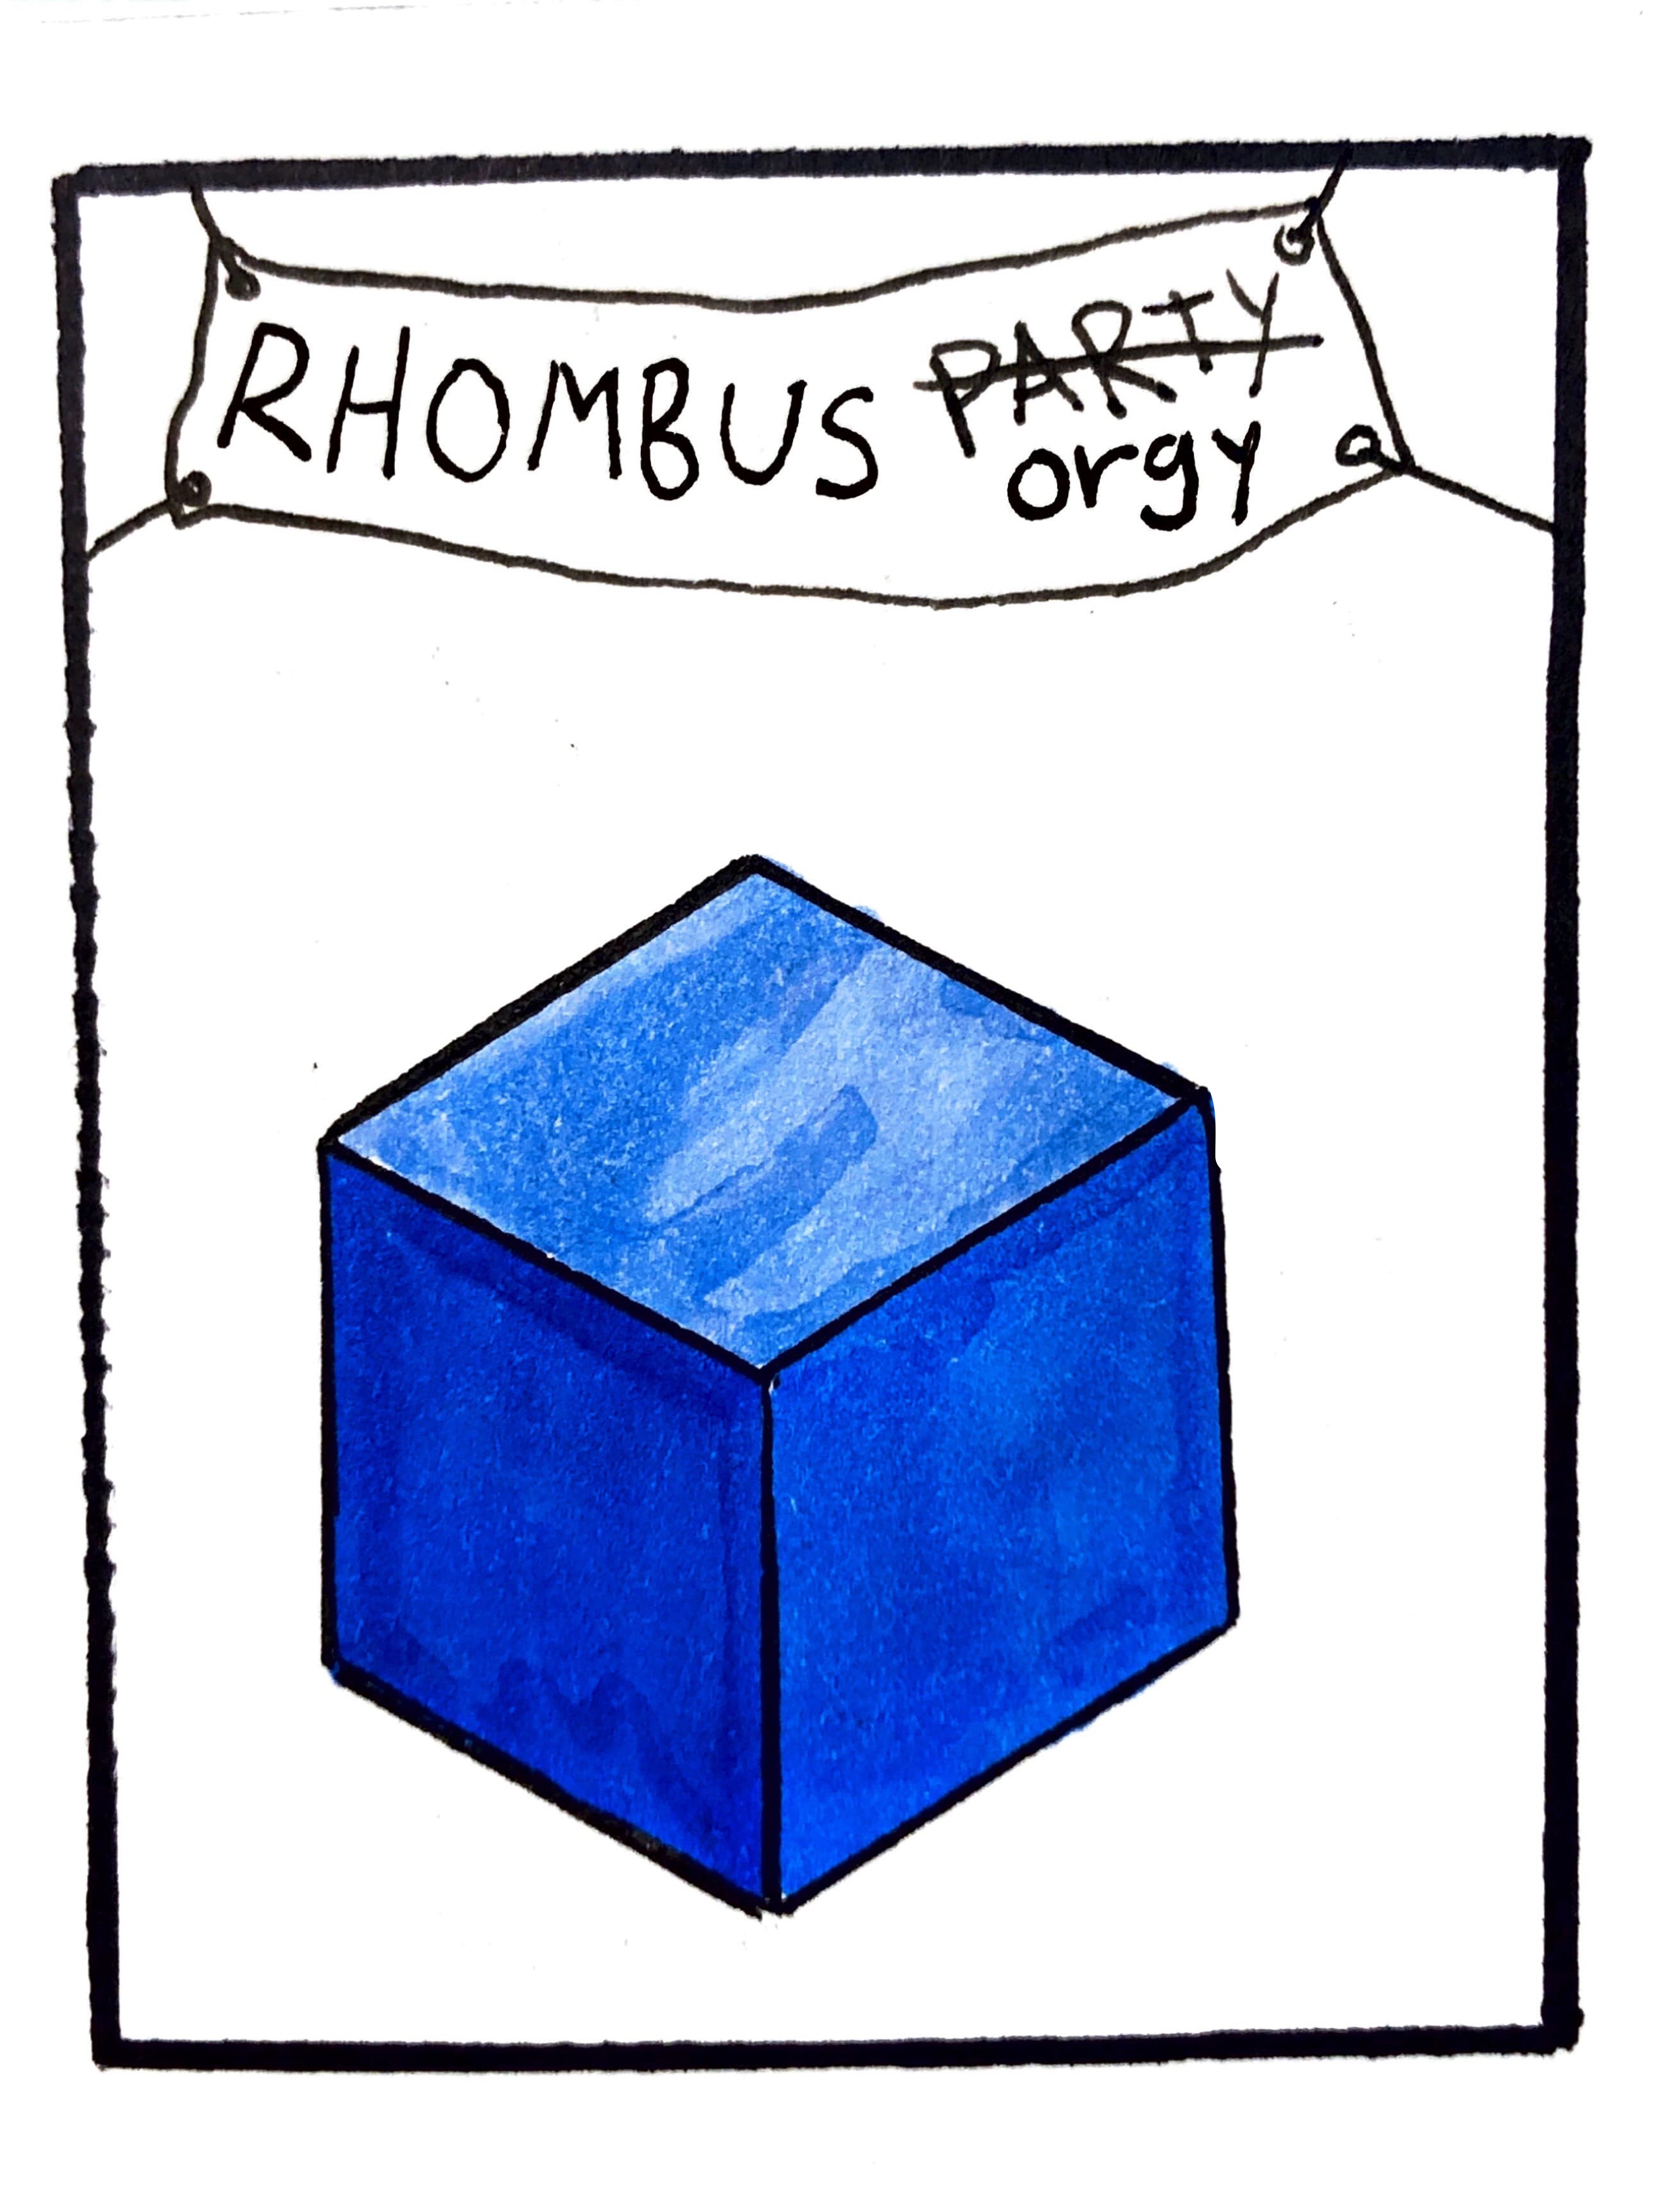 RHOMBUS PARTY
orgy